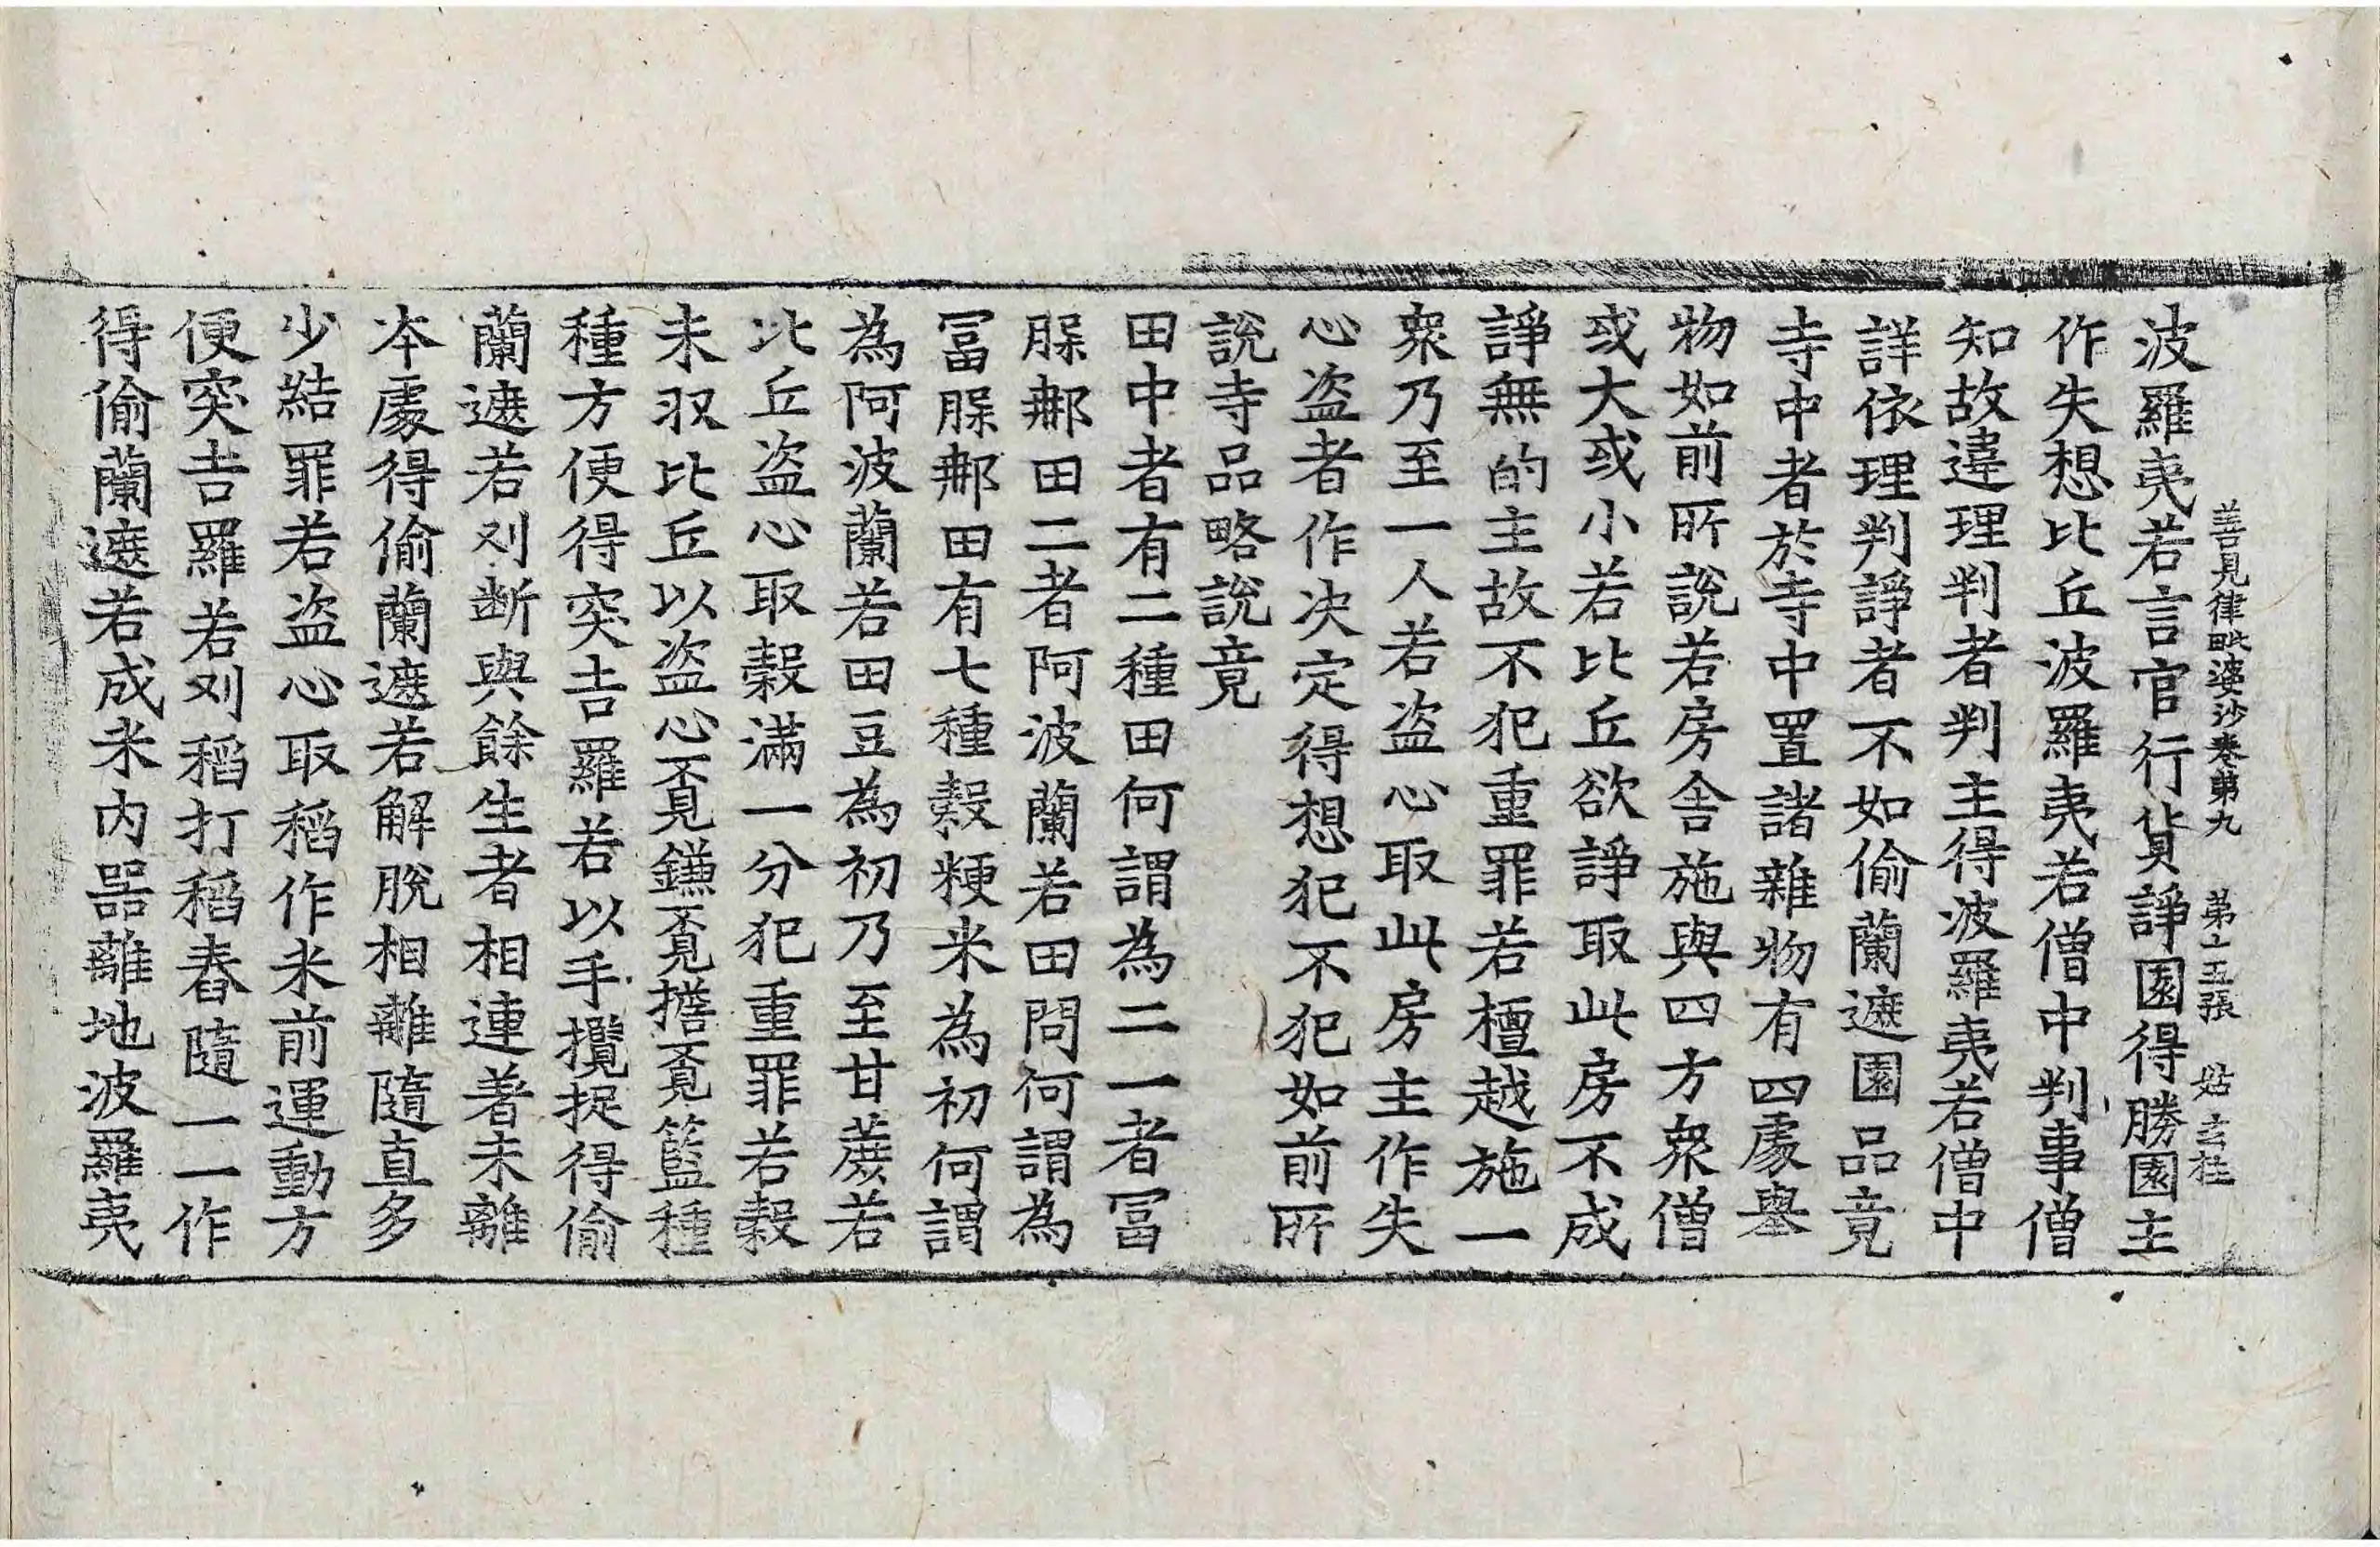 善見律毗婆沙卷第九 第十五張 姑 玄桂
波羅夷若言官行貨諍園得勝園主
作失想比丘波羅夷若僧中判事僧
知故違理判者判主得波羅夷若僧中
詳依理判諍者不如偷蘭遮園品竟
寺中者於寺中置諸雜物有四處舉
物如前所說若房舍施與四方衆僧
或大或小若比丘欲諍取此房不成
諍無的主故不犯重罪若檀越施一
衆乃至一人若盜心取此房主作失
心盜者作決定得想犯不犯如前所
說寺品略說竟
田中者有二種田何謂為二一者冨
脲郍田二者阿波蘭若田問何謂為
冨脲郍田有七種穀粳米為初何謂
為阿波蘭若田豆為初乃至甘蔗若
比丘盜心取穀滿一分犯重罪若穀
未収比丘以盜心覔鎌覔擔覔籃種
種方便得突吉羅若以手攬捉得偷
蘭遮若刈斷與餘生者相連著未離
本處得偷蘭遮若解脫相離隨直多
少結罪若盜心取稻作米前運動方
便突吉羅若刈稻打稻舂隨一一作
得偷蘭遮若成米內器離地波羅夷